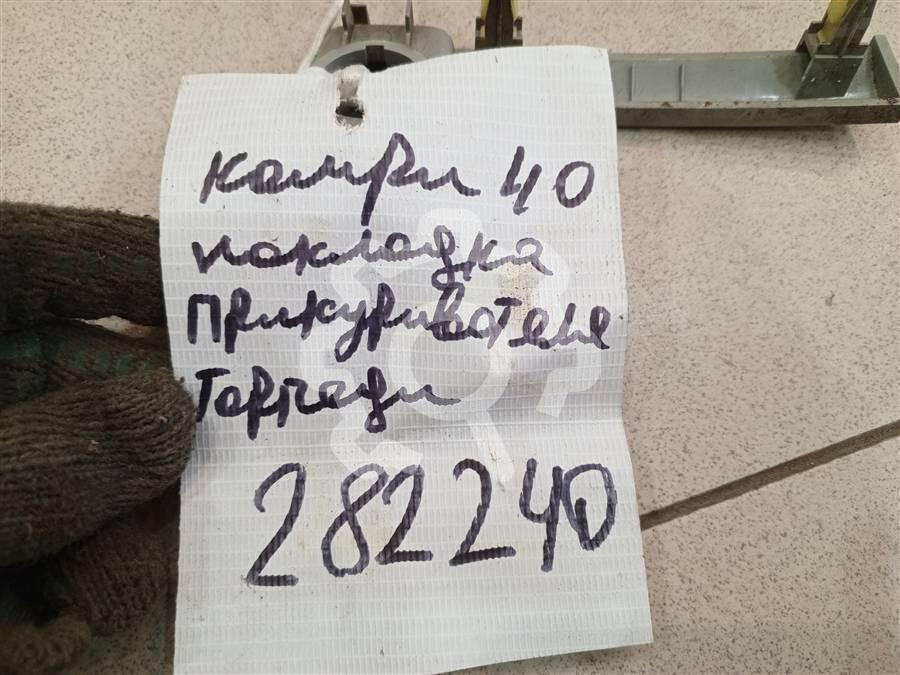 камри 40
накладка
прикуривателя
торпеди
282240